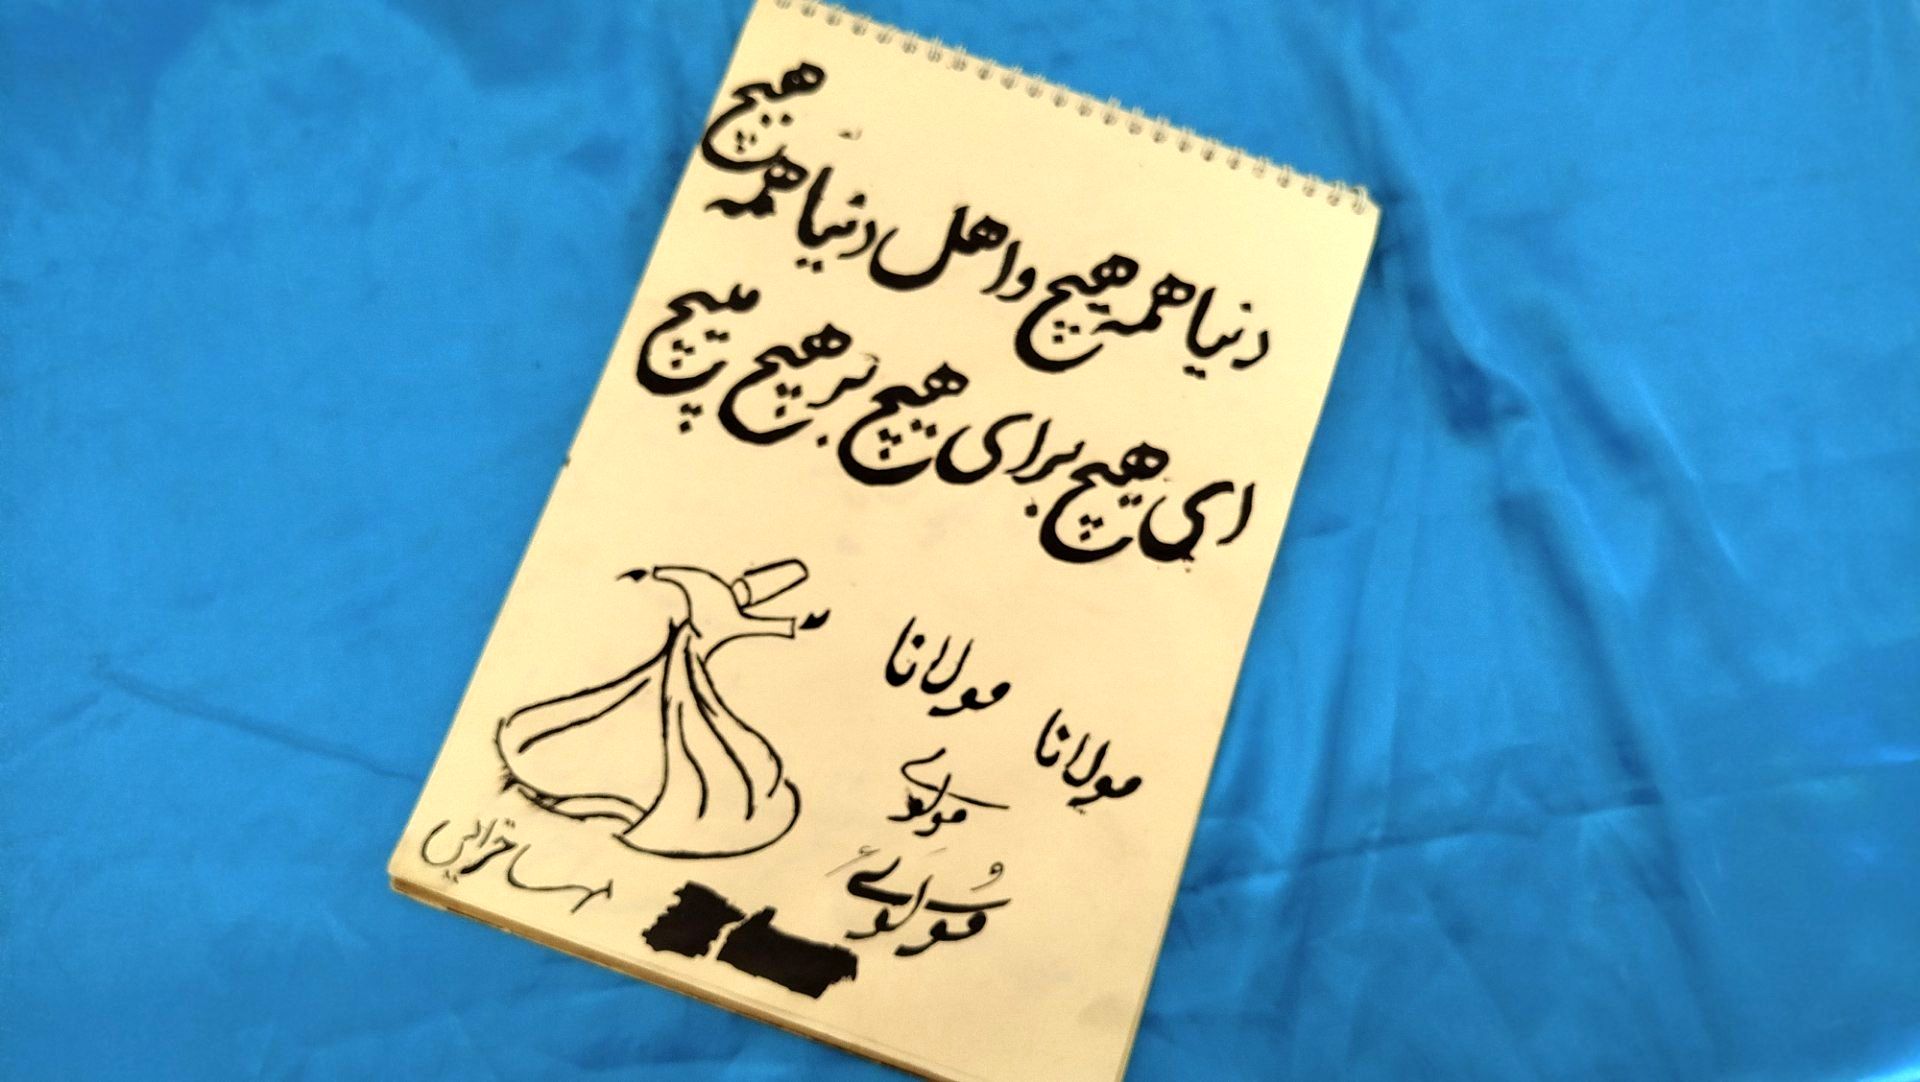 دنیا همه هیچ و اهل دنیا همه هیچ
ای هیچ برای هیچ بر هیچ مپیچ
مولانا
مولانا
مولوی
مولوی
مهسا خزایی